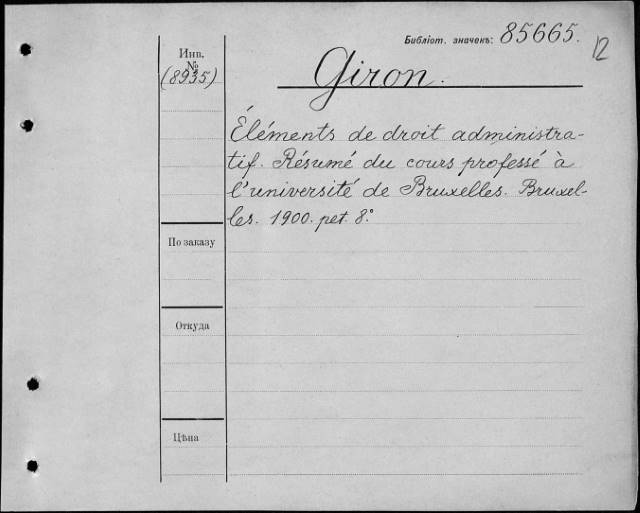 Библіот. значекъ: 85665. 12
Инв.
№
(8935)
Giron.
Éléments de droit administra-
tif. Résumé du cours professé à
l'université de Bruxelles. Bruxel-
les. 1900. pet. 8°
По заказу
Откуда
Цѣна